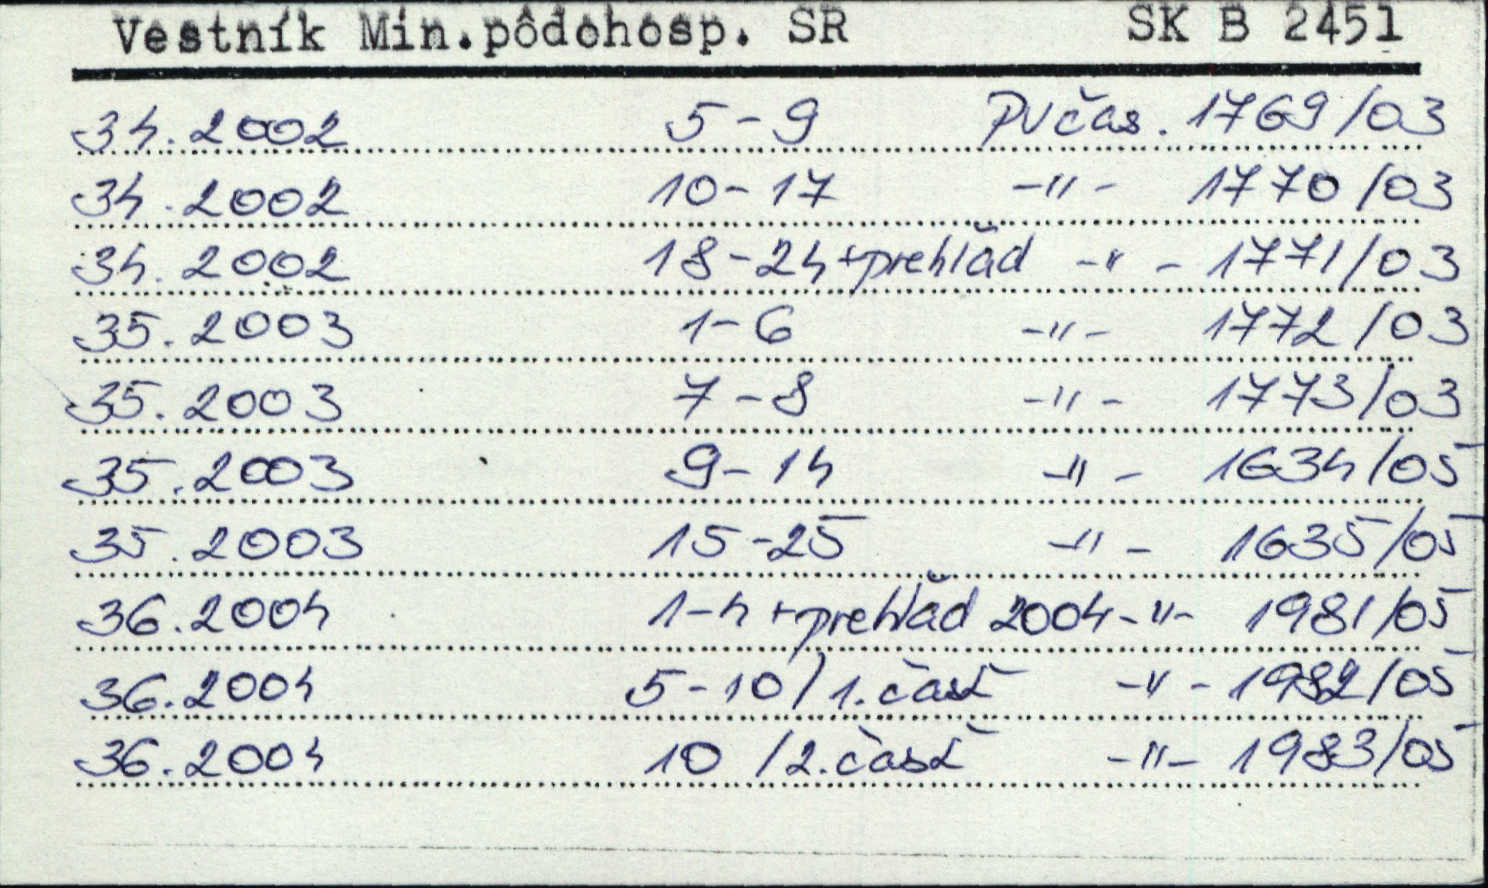 Vestník Min.pôdohosp. SR SK B 2451
34.2002 5-9 PV čas. 1769/03
34.2002 10-17 -"- 1770/03
34.2002 18-24+prehľad -"- 1771/03
35.2003 1-6 -"- 1772/03
35.2003 7-8 -"- 1773/03
35.2003 9-14 -"- 1634/05
35.2003 15-25 -"- 1635/05
36.2004 1-4+prehľad 2004 -"- 1981/05
36.2004 5-10/1.časť -"- 1982/05
36.2004 10/2.časť -"- 1983/05